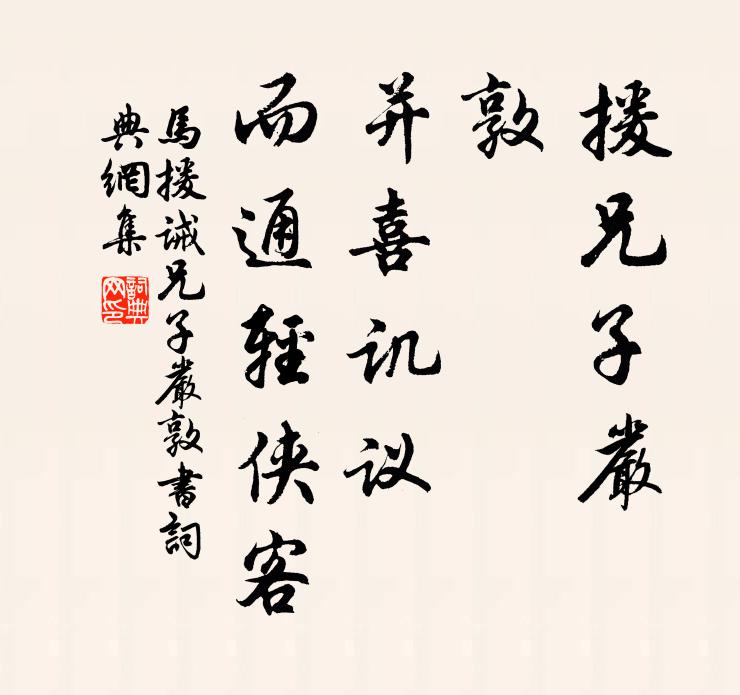 援兄子嚴
敦
并喜讥议
而通輕俠客
馬援誡兄子嚴敦書詞
典網集
詞典
网印